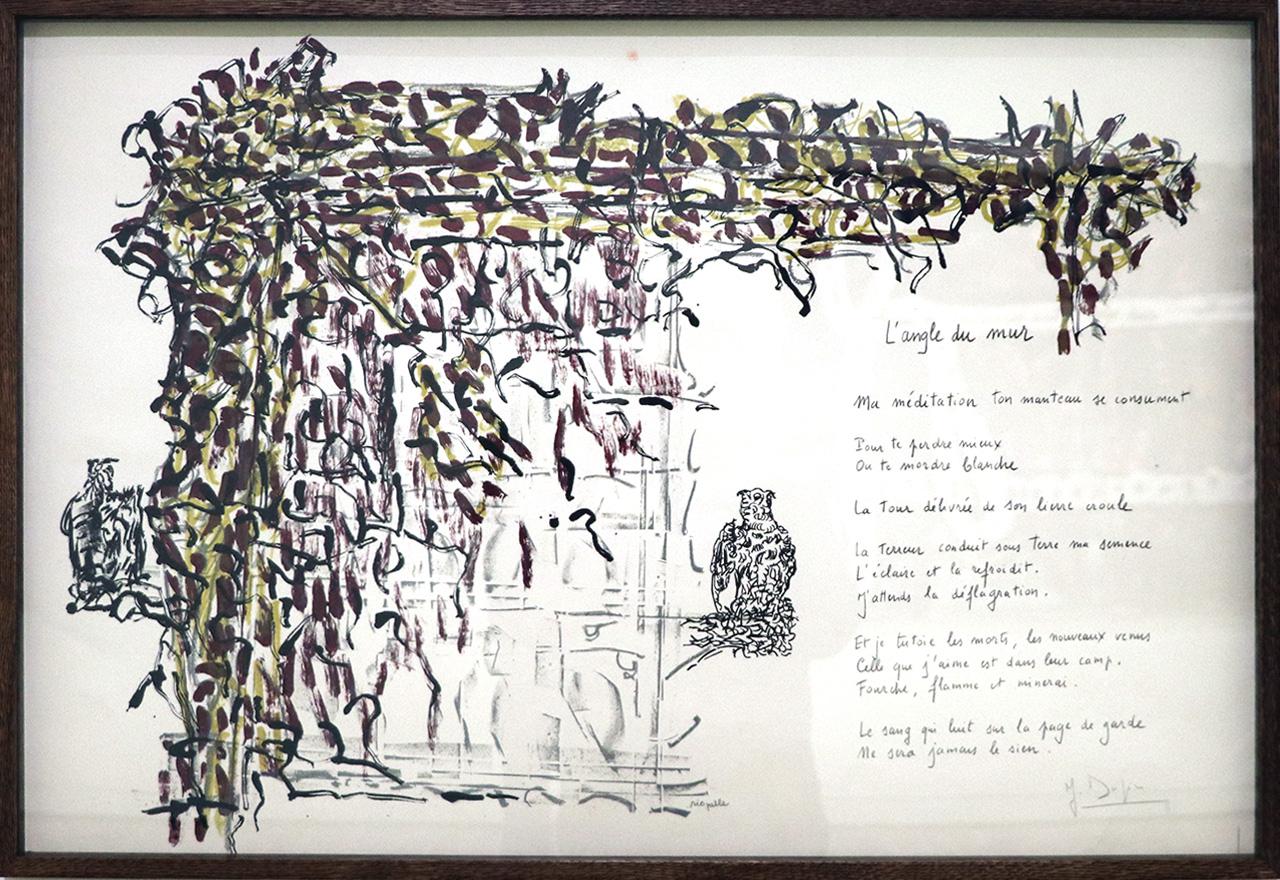 L'angle du mur
Ma méditation ton manteau se consument
Pour te perdre mieux
Ou te mordre blanche
La Tour délivrée de son lierre croule
La Terreur conduit sous Terre ma semence
L'éclaire et la refroidit.
J'attends la déflagration.
Et je tutoie les morts, les nouveaux venus
Celle que j'aime est dans leur camp.
Fourche, flamme et minerai.
Le sang qui luit sur la page de garde
Ne sera jamais le sien.
riopelle